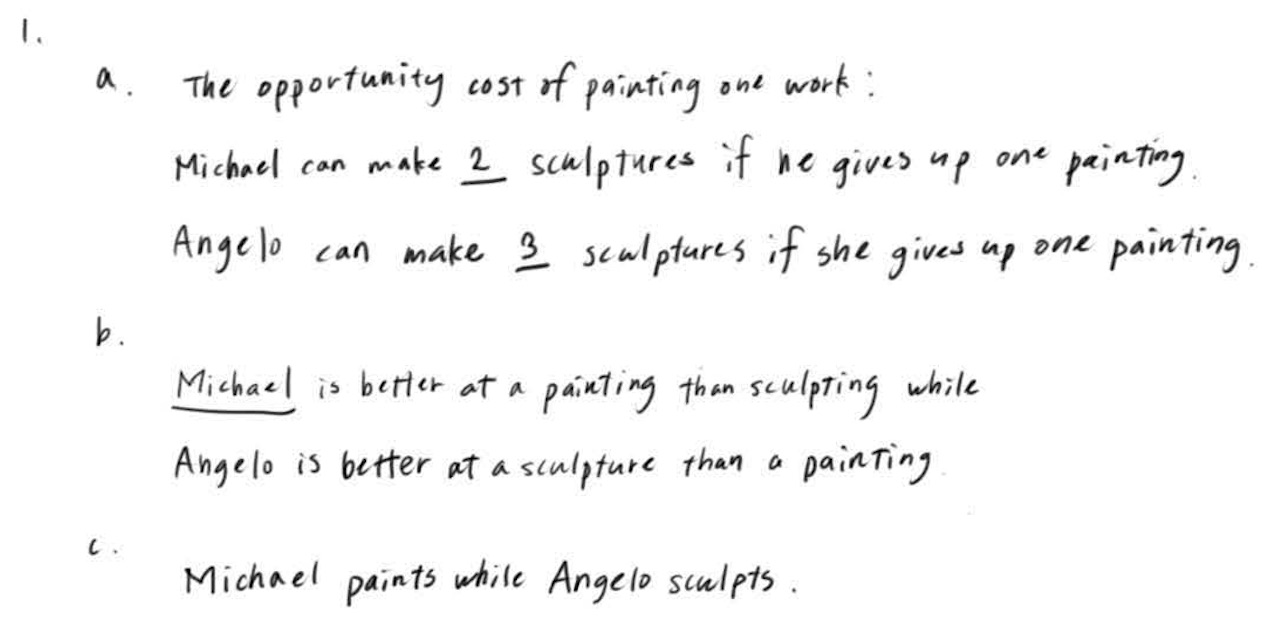 1.
a. The opportunity cost of painting one work :
Michael can make 2 sculptures if he gives up one painting.
Angelo can make 3 sculptures if she gives up one painting.
b.
Michael is better at a painting than sculpting while
Angelo is better at a sculpture than a painting.
c.
Michael paints while Angelo sculpts.